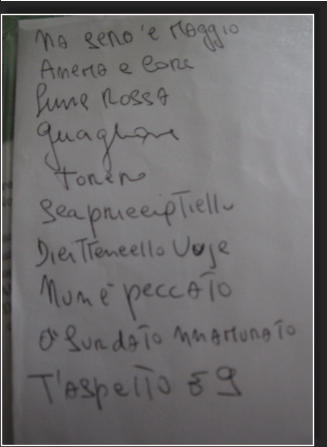 Na sero 'e Maggio
Anema e Core
Luna Rossa
Guaglione
Torero
Scapricciatiello
Dicitencello Vuje
Nun è peccato
O' surdato nnammurato
T'aspetto e 9